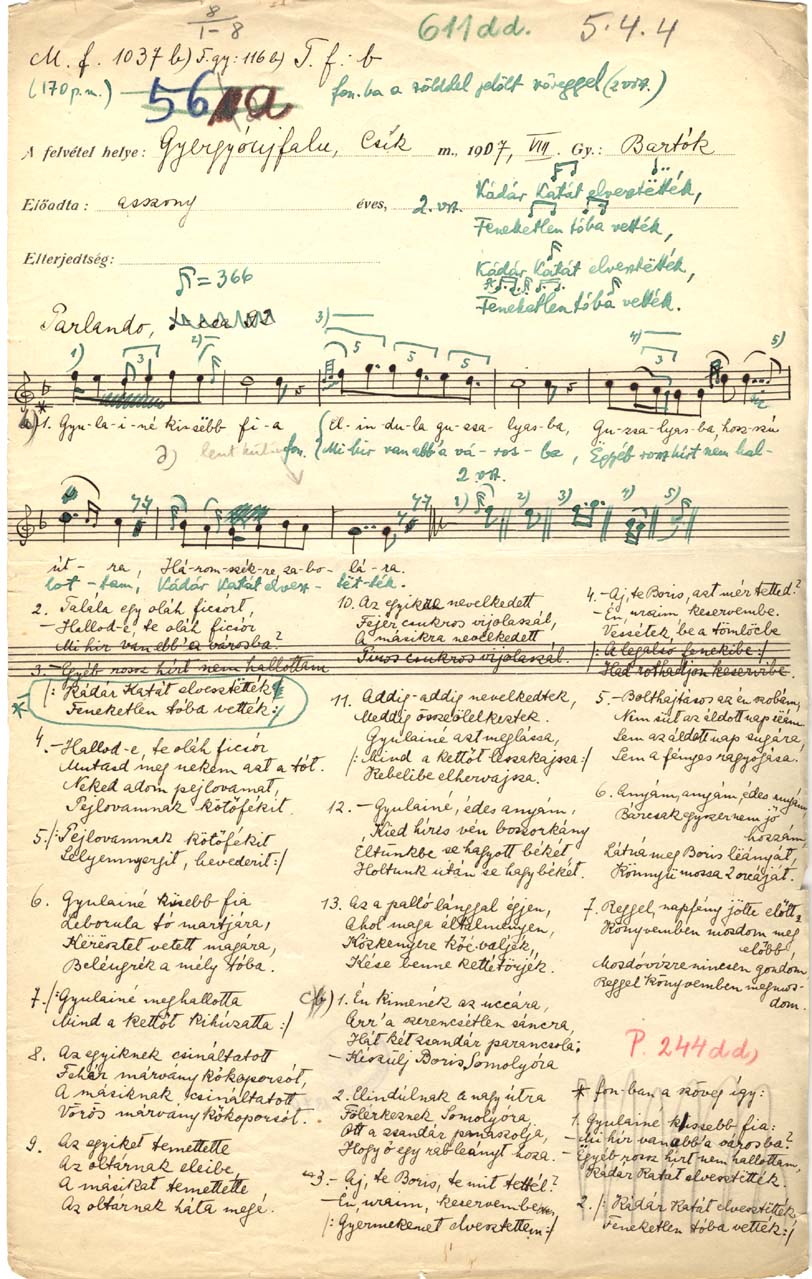 8
1-8
611dd.
5.4.4
M. f. 1037 b) T.gy: 116 b) T. f: b
(170 p.m.)
56
a
fon.ba a zölddel jelölt szöveggel (2 vsz.)
A felvétel helye: Gyergyóújfalu, Csík m., 1907, VIII. Gy.: Bartók
Előadta: asszony éves,
Elterjedtség:
2. vsz.
Kádár Katát elvesztëtték,
Feneketlen tóba vették,
Kádár Katát elvesztëtték,
Feneketlen tóba vették.
= 366
Parlando,
1) 3 2) 3) 5 5 5 4) 3 5)
1. Gyu-la-i-né kisëbb fi-a El-in-du-la gu-zsa-lyas-ba, Gu-zsa-lyas-ba, hosz-szú
fon. Mi hír van abb'a vá-ros-ba, Ëgyéb rossz hírt nem hal-
2. vsz.
1) 2) 3) 4) 5)
út-ra, Há-rom-szék-re, za-bo-lá-ra.
lot-tam, Kádár Katát elvesz-tët-ték.
2. Talála egy oláh ficsort,
- Hallod-e, te oláh ficsór
Mi hír van ebb' a városba?
3. - Egyéb rossz hírt nem hallottam
/: Kádár Katát elvesztëtték
Feneketlen tóba vették :/
4. - Hallod-e, te oláh ficsór
Mutasd meg nekem azt a tót.
Neked adom pejlovamat,
Pejlovamnak kötőfékit.
5. /: Pejlovamnak kötőfékit
Selyemnyergit, hevederit :/
6. Gyulainé kisebb fia
Leborula tó martjára,
Kërësztet vetett magára,
Beléugrék a mély tóba.
7. /: Gyulainé meghallotta
Mind a kettőt kihúzatta :/
8. Az egyiknek csináltatott
Fehár márvány kőkoporsót,
A másiknak csináltatott
Vörös márvány kőkoporsót.
9. Az egyiket temettette
Az oltárnak eleibe,
A másikat temettette
Az oltárnak háta megé.
10. Az egyik nevelkedett
Fejér csukros vijolaszál,
A másikra nevelkedett
Piros csukros vijolaszál.
11. Addig-addig nevelkedtek,
Meddig összeölelkeztek.
Gyulainé azt meglássa,
/: Mind a kettőt leszakajssza :/
Kebelibe elhervajsza.
12. - Gyulainé, édes anyám,
Kied híres vén boszorkány
Éltünkbe se hagyott békét
Holtunk után se hagy békét.
13. Az a palló lánggal égjen,
Ahol maga általmenyen,
Közkenyre kőé váljék,
Kése benne kettétörjék.
1. Én kimenék az uccára,
Arr'a szerencsétlen sáncra,
Hát két zsandár parancsolá:
- Készülj Boris, Somolyóra
2. Elindúlnak a nagy útra
Fölérkeznek Somolyóra
Ott a zsandár panaszolja,
Hogy ő egy rab leányt hoza.
3. - Aj, te Boris, te mit tettél?
- Én, uraim, keservembe,
/: Gyermekemet elvesztettem :/
4. - Aj, te Boris, azt mér tetted?
- Én, uraim keservembe.
Vessétek be a tömlöcbe
/: A legalsó fenekibe :/
Had rothadjon keservibe.
5. - Bolthajtásos az én szobám,
Nem süt az áldott nap reám
Sem az áldott nap sugára,
Sem a fényes ragyogása.
6. Anyám, anyám, édes anyám,
Bárcsak egyszer nem jő
hozzám,
Látná meg Boris leányát,
Könnyű mossa 2 orcáját.
7. Reggel, napfény jötte előtt,
Könyvemben mosdom meg
elöbb,
Mosdóvízre nincsen gondom,
Reggel könyvemben megmos-
dom.
P. 244dd)
* fon-ban a szöveg így:
1. Gyulainé kissebb fia:
- Mi hír van abb'a városba?
- Ëgyéb rossz hírt nem hallottam,
Kádár Katát elvesztëtték.
2. /: Kádár Katát elvesztëtték,
Feneketlen tóba vették :/